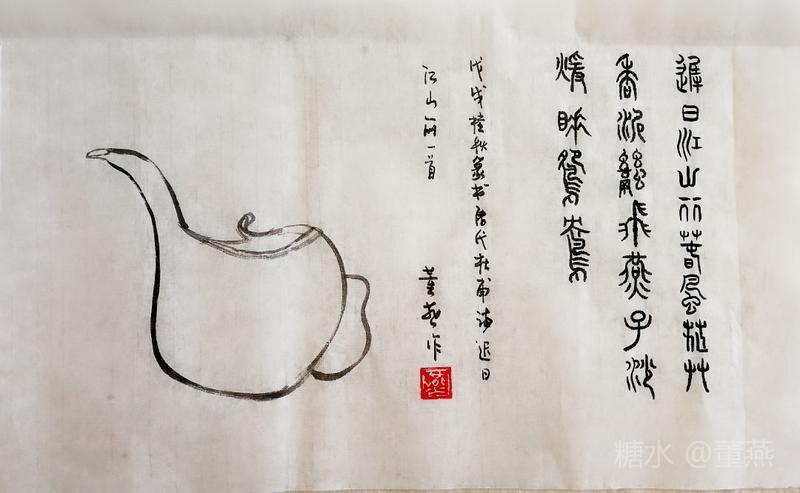 遲日江山丽春風花艸
香泥融飛燕子沙
煖睡鴛鴦
戊戌桂秋篆书唐代杜甫诗迟日
江山丽一首
董燕作
糖水 @董燕